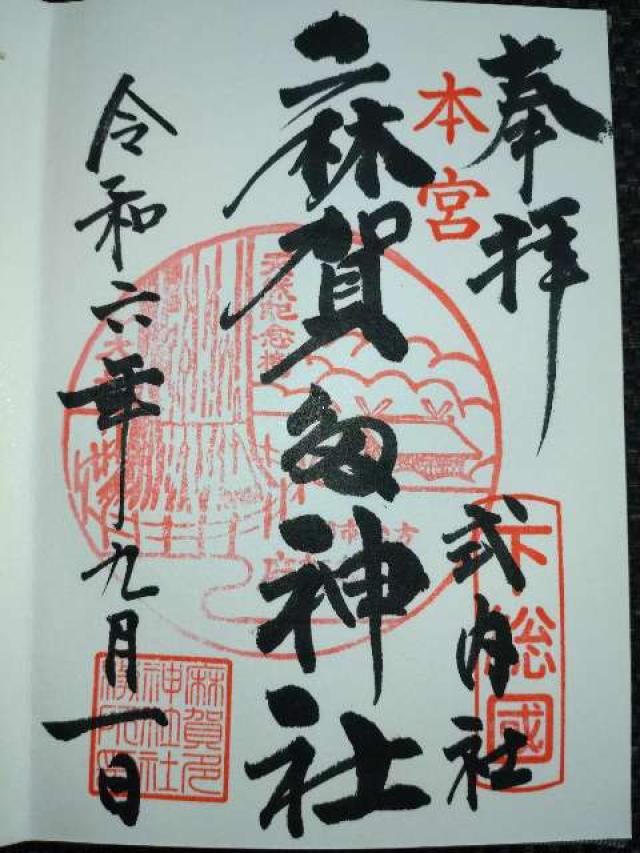 奉拝
本宮
下総國
式内社
麻賀多神社
天然記念樹
麻賀多神社
令和六年九月一日